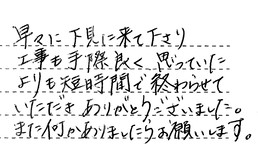 早々に下見に来て下さり
工事も手際良く思っていた
よりも短時間で終わらせて
いただきありがとうございました。
また何かありましたらお願いします。